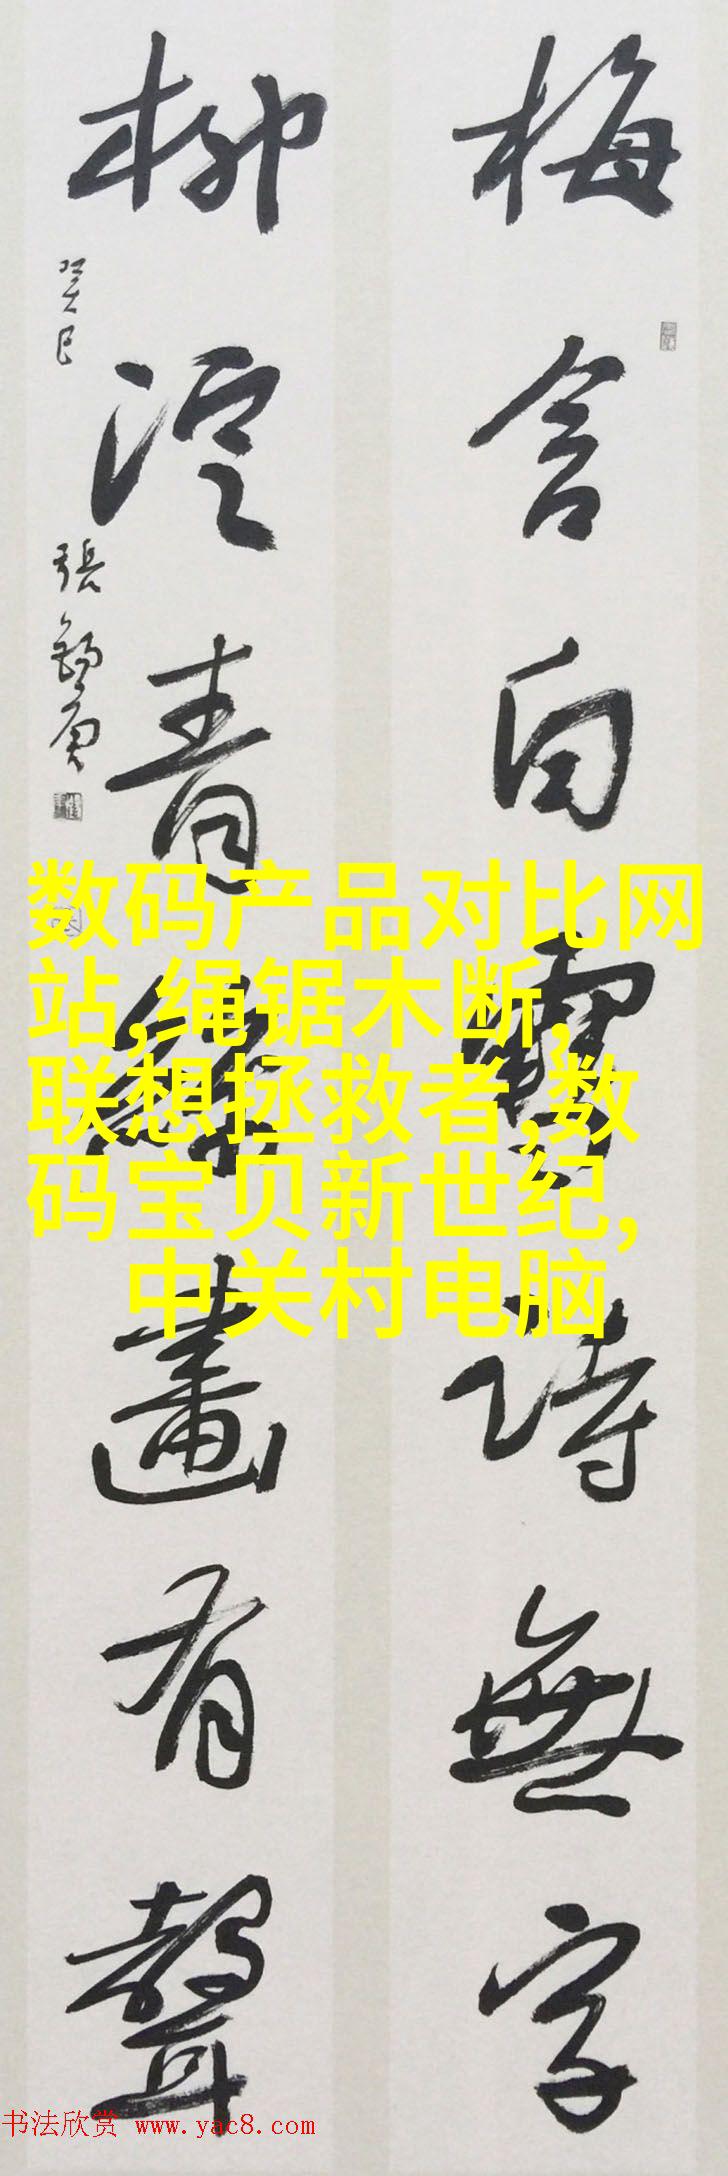 梅含白雪詩無字
柳泛青絲畫有聲
癸巳
張錫庚
数码产品对比网
站,绳锯木断,
联想拯救者,数
码宝贝新世纪,
中关村电脑
书法欣赏 www.yac8.com